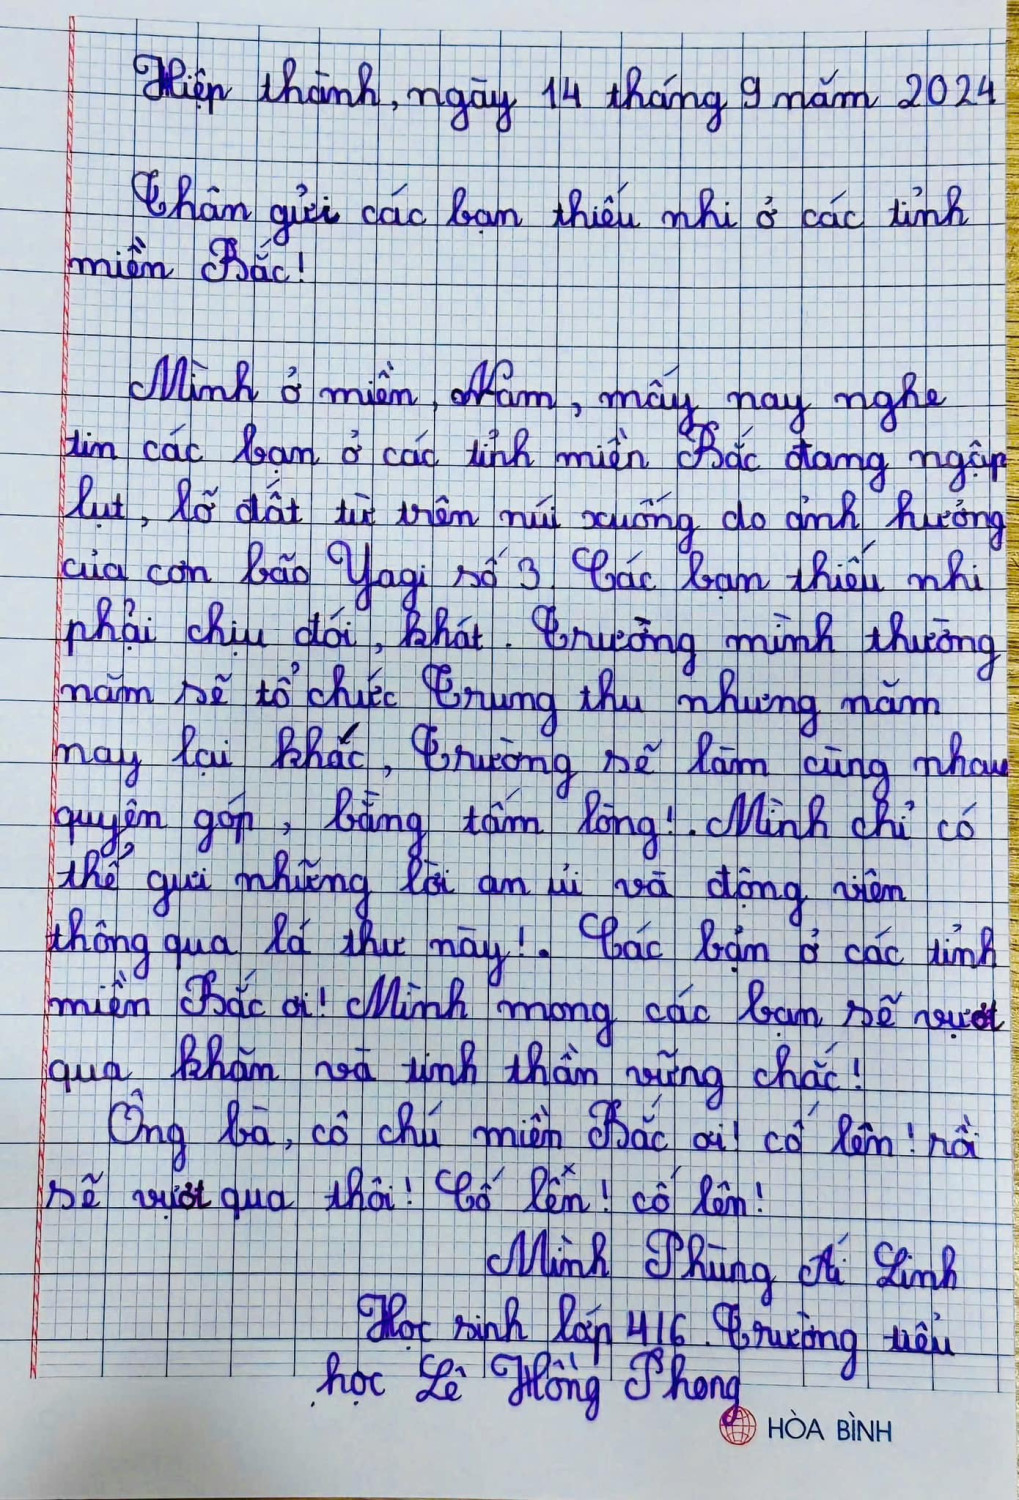 Hiệp thành, ngày 14 tháng 9 năm 2024
Thân gửi các bạn thiếu nhi ở các tỉnh
miền Bắc!
Mình ở miền Nam, mấy nay nghe
tin các bạn ở các tỉnh miền Bắc đang ngập
lụt, lỡ đất từ trên núi xuống do ảnh hưởng
của cơn bão Yagi số 3. Các bạn thiếu nhi
phải chịu đói, khát. Trường mình thường
năm sẽ tổ chức Trung thu nhưng năm
nay lại khác, Trường sẽ làm cùng nhau
quyên góp, bằng tấm lòng!. Mình chỉ có
thể gửi những lời an ủi và động viên
thông qua lá thư này!. Các bạn ở các tỉnh
miền Bắc ơi! Mình mong các bạn sẽ vượt
qua khăn và tinh thần vững chắc!
Ông bà, cô chú miền Bắc ơi! cố lên! rồi
sẽ vượt qua thôi! Cố lên! cố lên!
Mình Phùng Ái Linh
Học sinh lớp 4/6. Trường tiểu
học Lê Hồng Phong
HÒA BÌNH